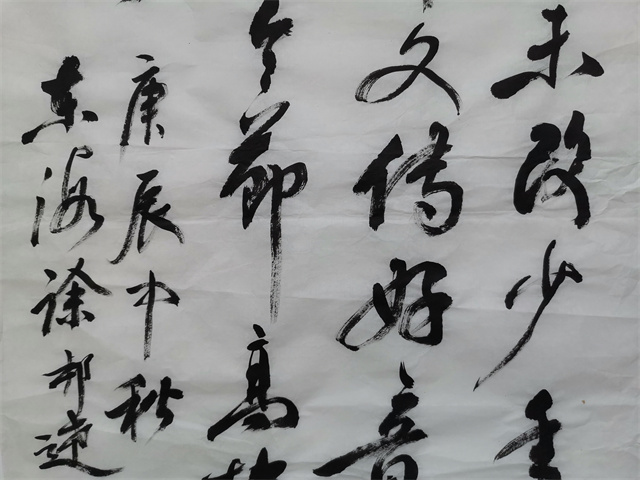 未改少年
文传好音
今节高
庚辰中秋
东海徐邦达